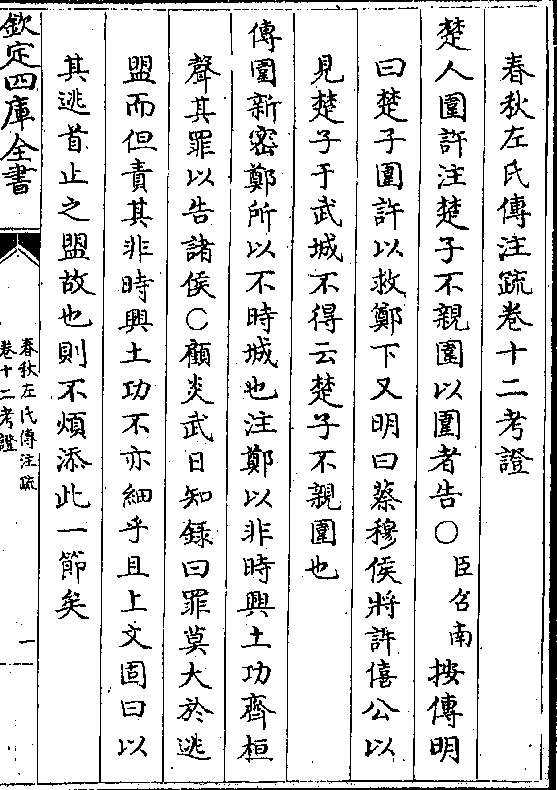 春秋左氏傳注疏卷十二考證
楚人圍許注楚子不親圍以圍者告○臣召南按傳明
曰楚子圍許以救鄭下又明曰蔡穆侯將許僖公以
見楚子于武城不得云楚子不親圍也
傳圍新密鄭所以不時城也注鄭以非時興土功齊桓
聲其罪以告諸侯○顧炎武日知錄曰罪莫大於逃
盟而但責其非時興土功不亦細乎且上文固曰以
其逃首止之盟故也則不煩添此一節矣
欽定四庫全書
春秋左氏傳注疏
卷十二考證
一